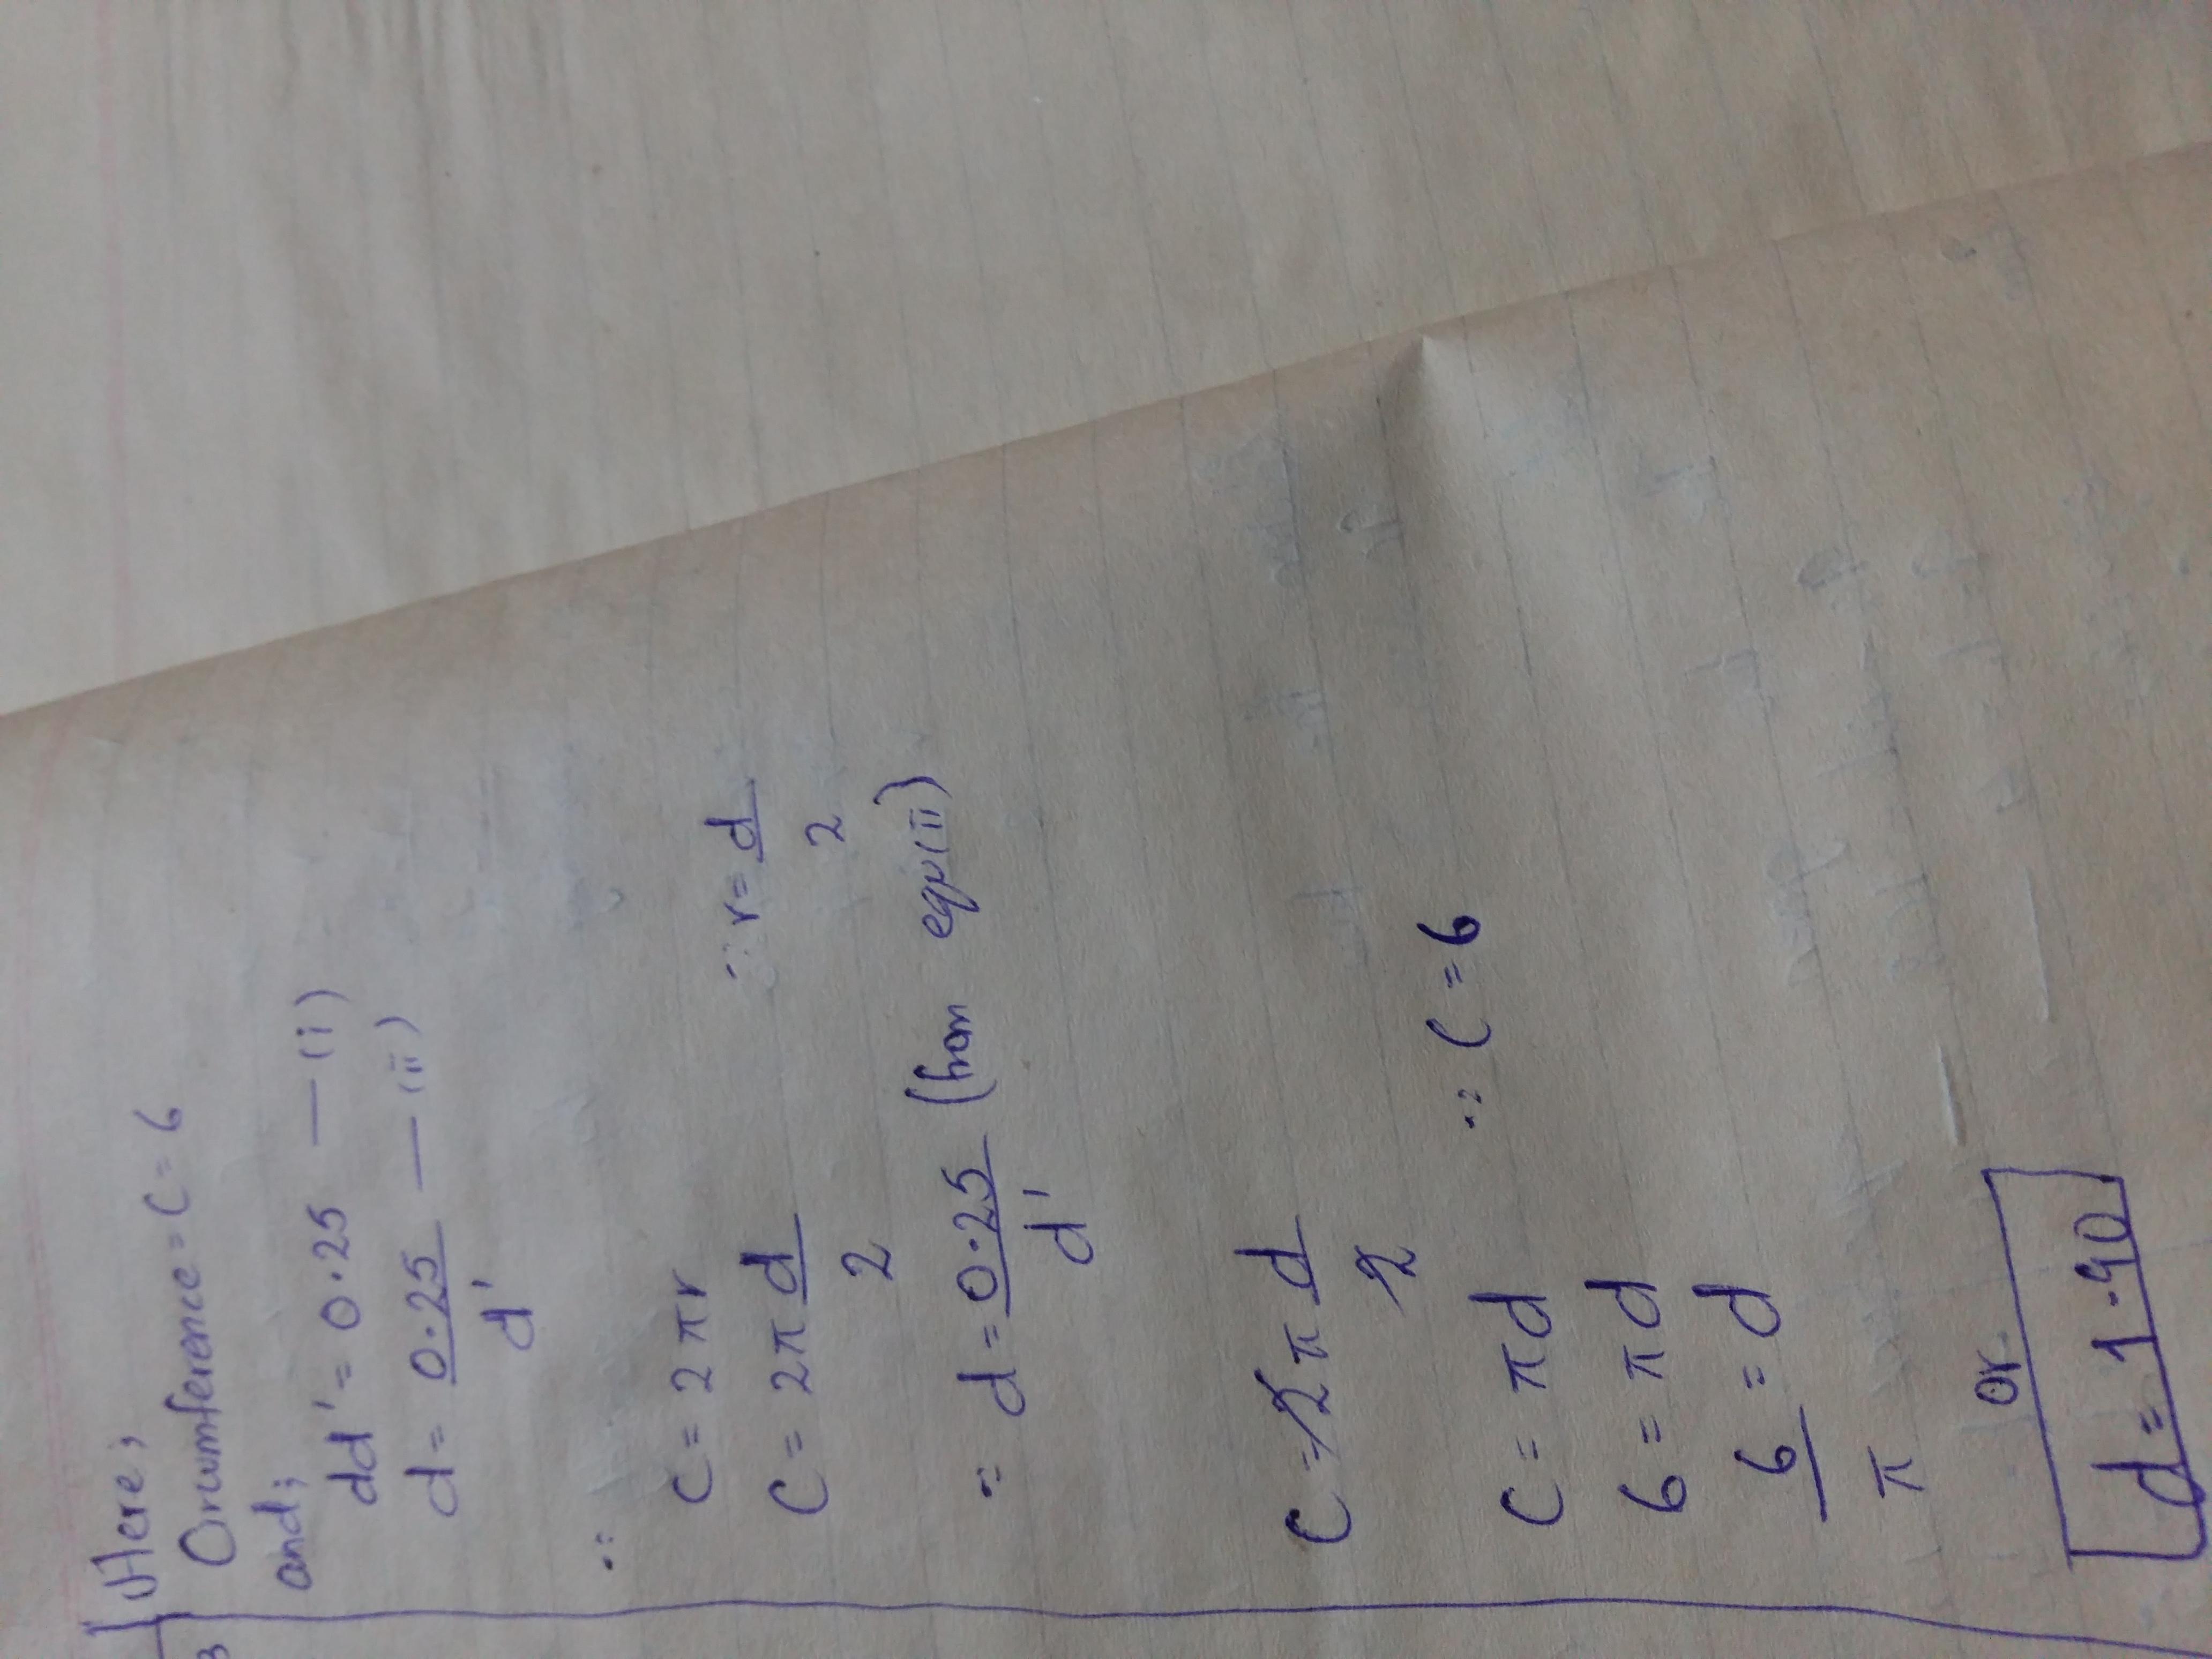 3 Here;
Circumference = C = 6
and;
dd' = 0.25 — (i)
d = 0.25 / d' — (ii)
∴
C = 2πr
C = 2π d/2 ∵ r = d/2
∵ d = 0.25 / d' (from equ(ii))
C = 2π d/2
C = πd ∵ C = 6
6 = πd
6/π = d
or
d = 1.90